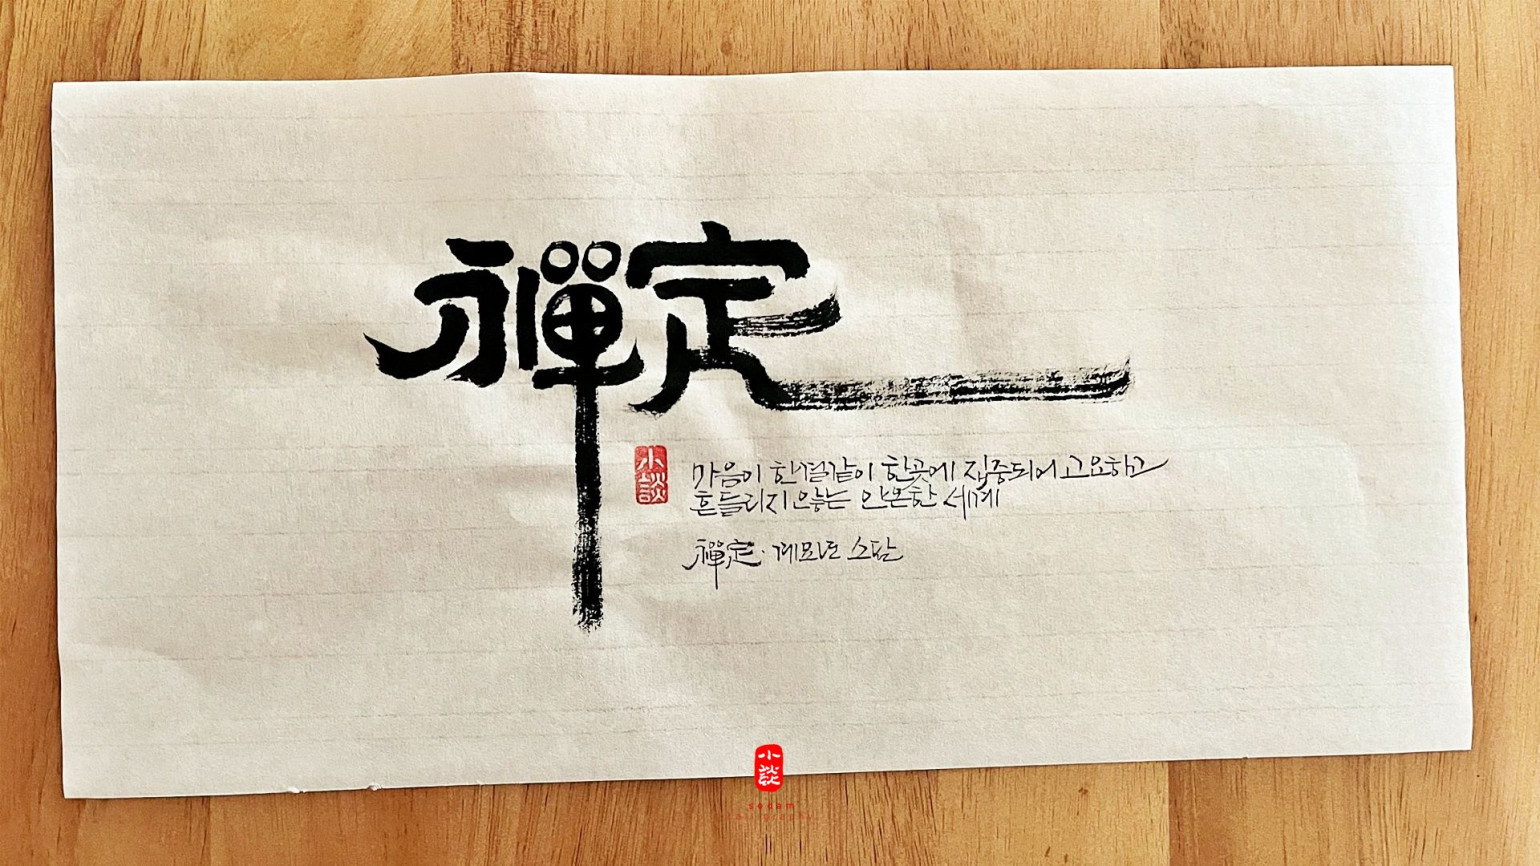 禪定
小談
마음이 한결같이 한곳에 집중되어 고요하고
흔들리지 않는 안온한 세계
禪定·계묘년 소담
小談
sodam
calligraphy